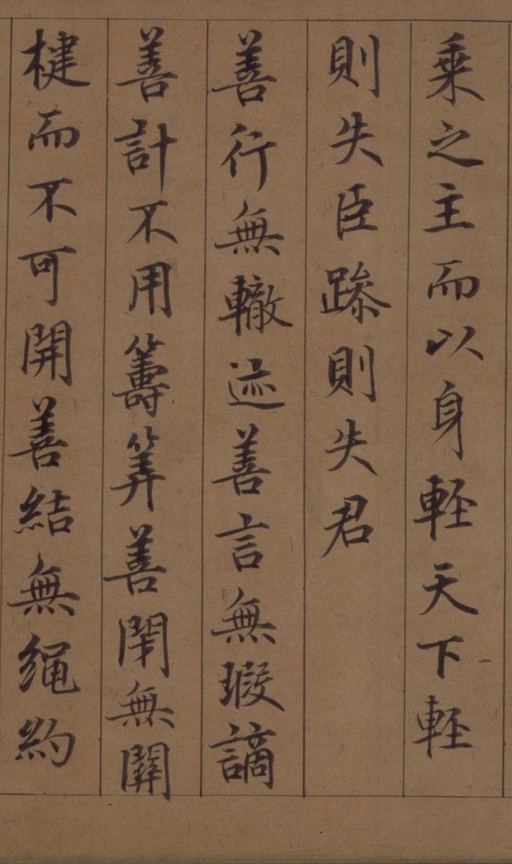 乗之主而以身軽天下軽
則失臣躁則失君
善行無轍迹善言無瑕謫
善計不用籌筭善閇無關
楗而不可開善結無繩約